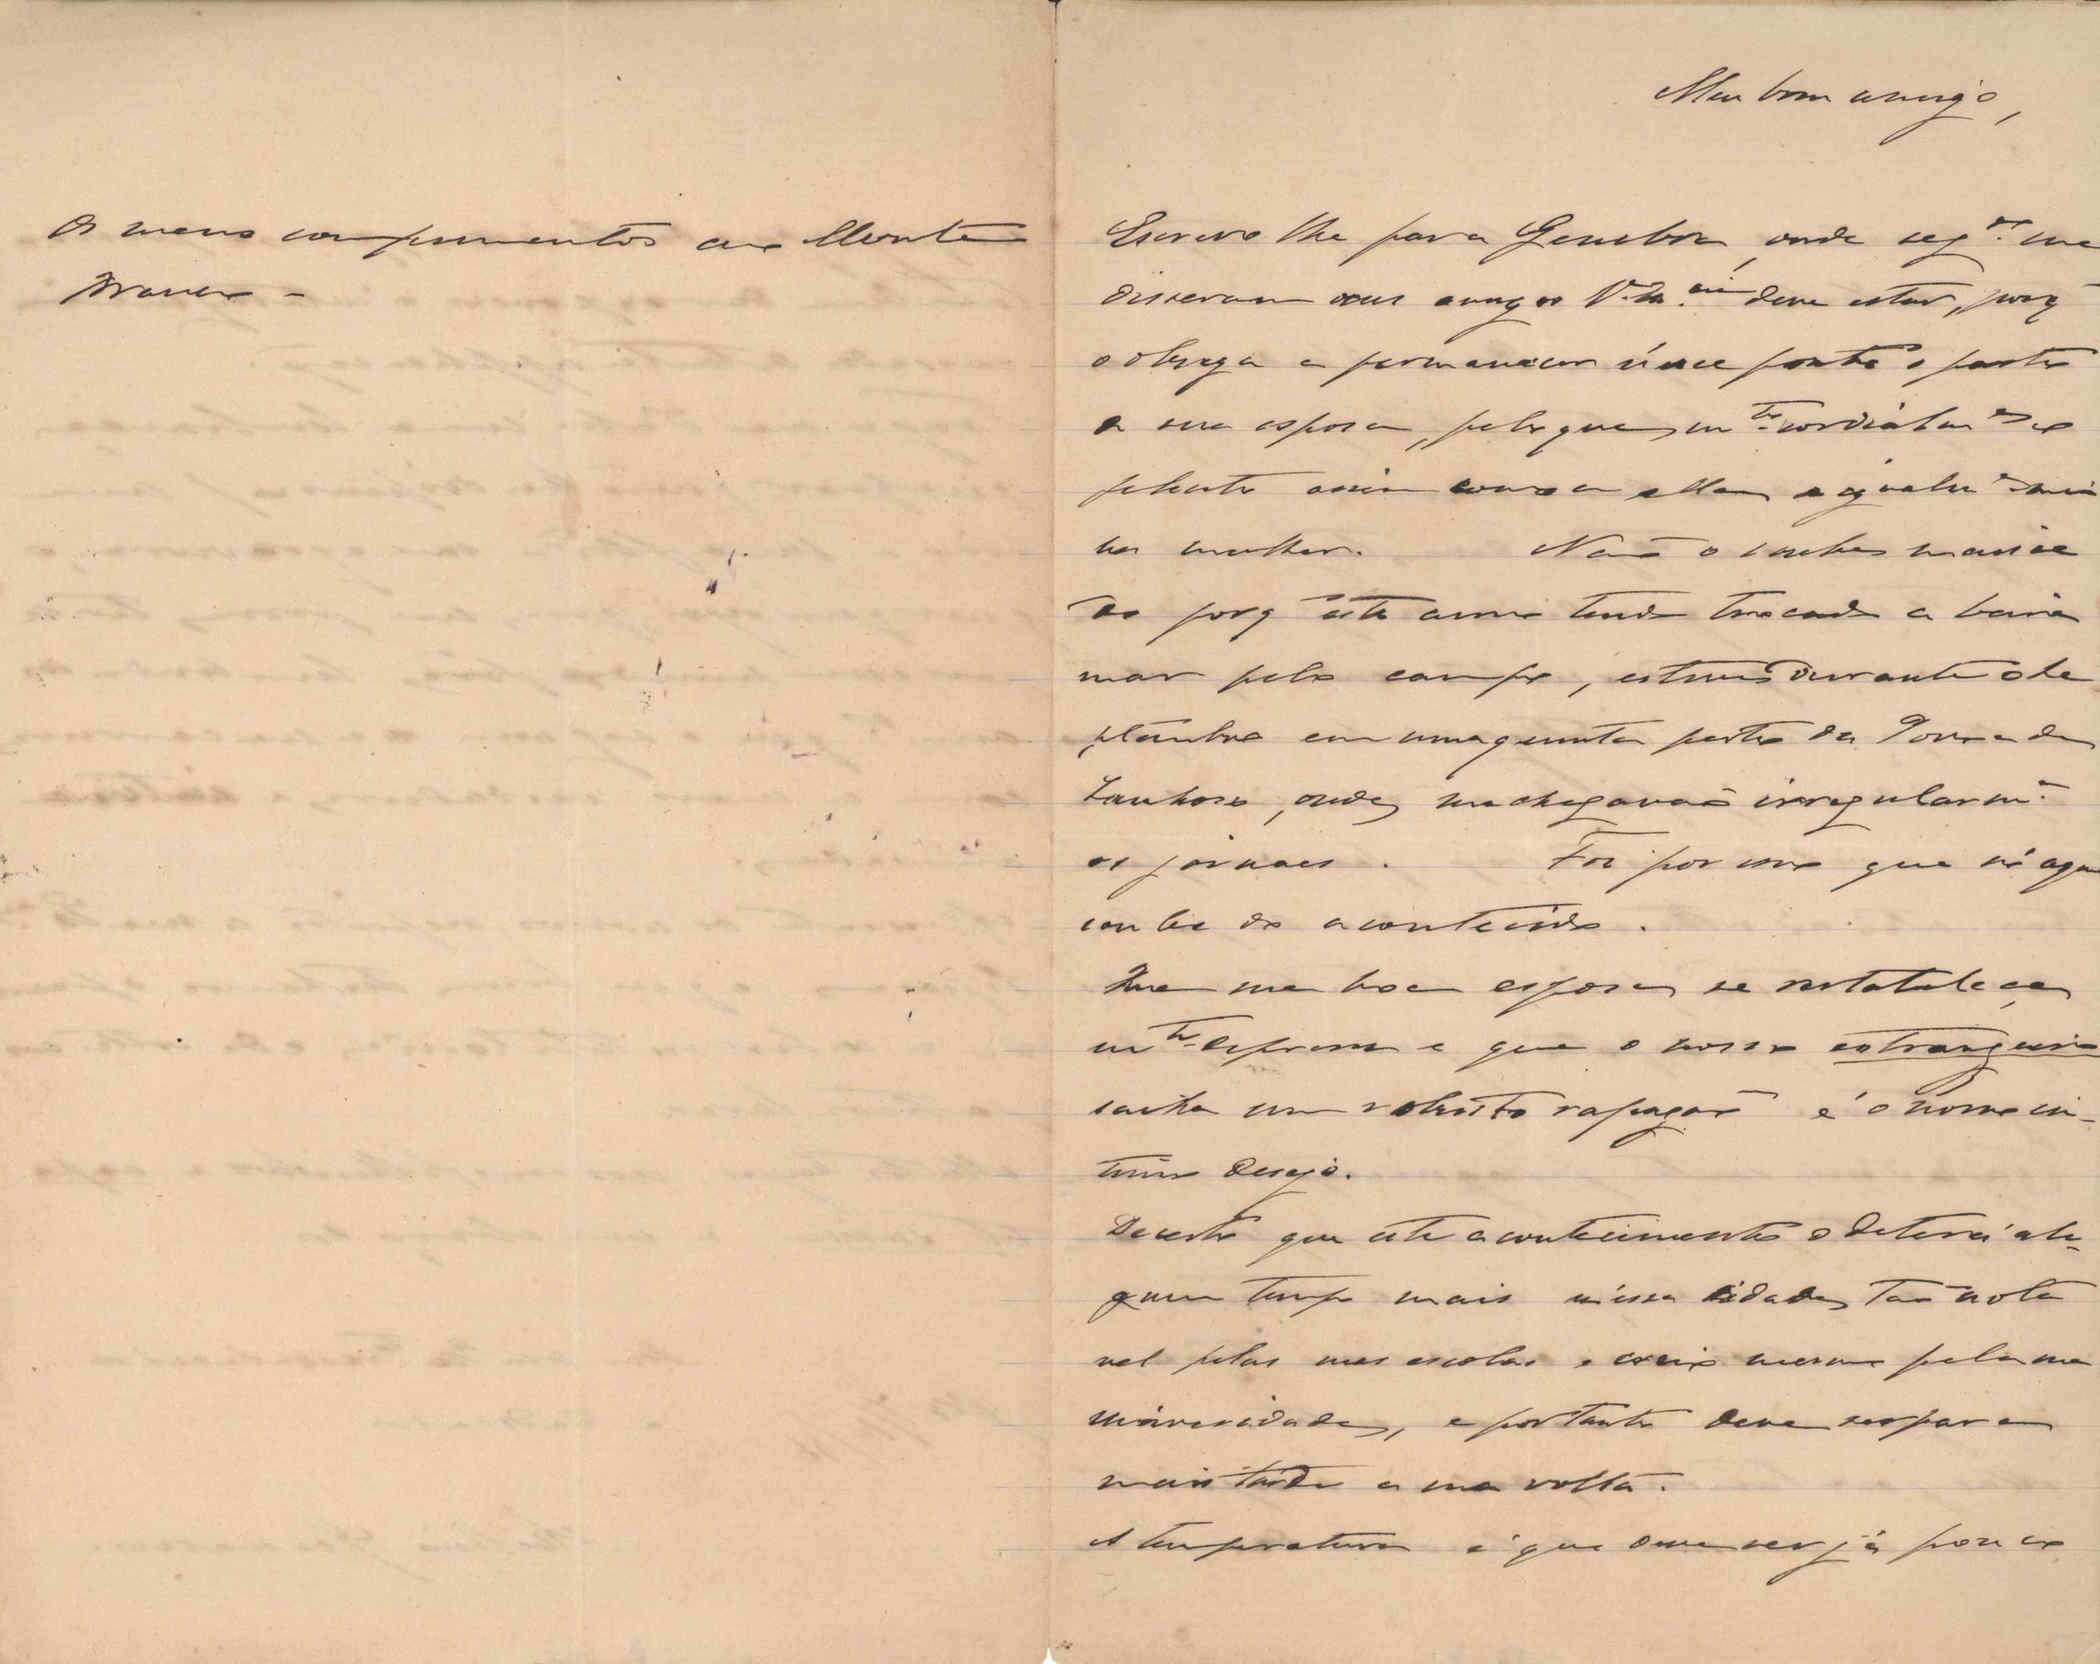 Meu bom amigo,
Escrevo lhe para Genebra, onde seg.do me
disseram seus amigos V. Ex.cia deve estar, porq
o obriga a permanecer n'esse ponto o parto
de sua esposa, pelo que m.to cordialm.e o
felicito assim como a ella e igualm.e mi
nha mulher. Não o soube mais ce
do porq este anno tendo trocado a beira
mar pelo campo, estive durante o Se
ptembro em uma quinta perto da Povoa de
Lanhoso, onde me chegavão irregularm.e
os jornaes. Foi por isso que só aqui
soube do acontecido.
Que sua boa esposa se restabeleça
m.to depressa e que o nosso estrangeiro
saiha um robusto rapagão é o nosso in-
timo desejo.
Decerto que este acontecimento o deterá al-
gum tempo mais n'essa cidade, tão nota
vel pelas suas escolas e creio mesmo pela sua
universidade, e portanto deve ser para
mais tarde a sua volta.
A temperatura é que deve ser já pouco
Os meus comprimentos aos Monte